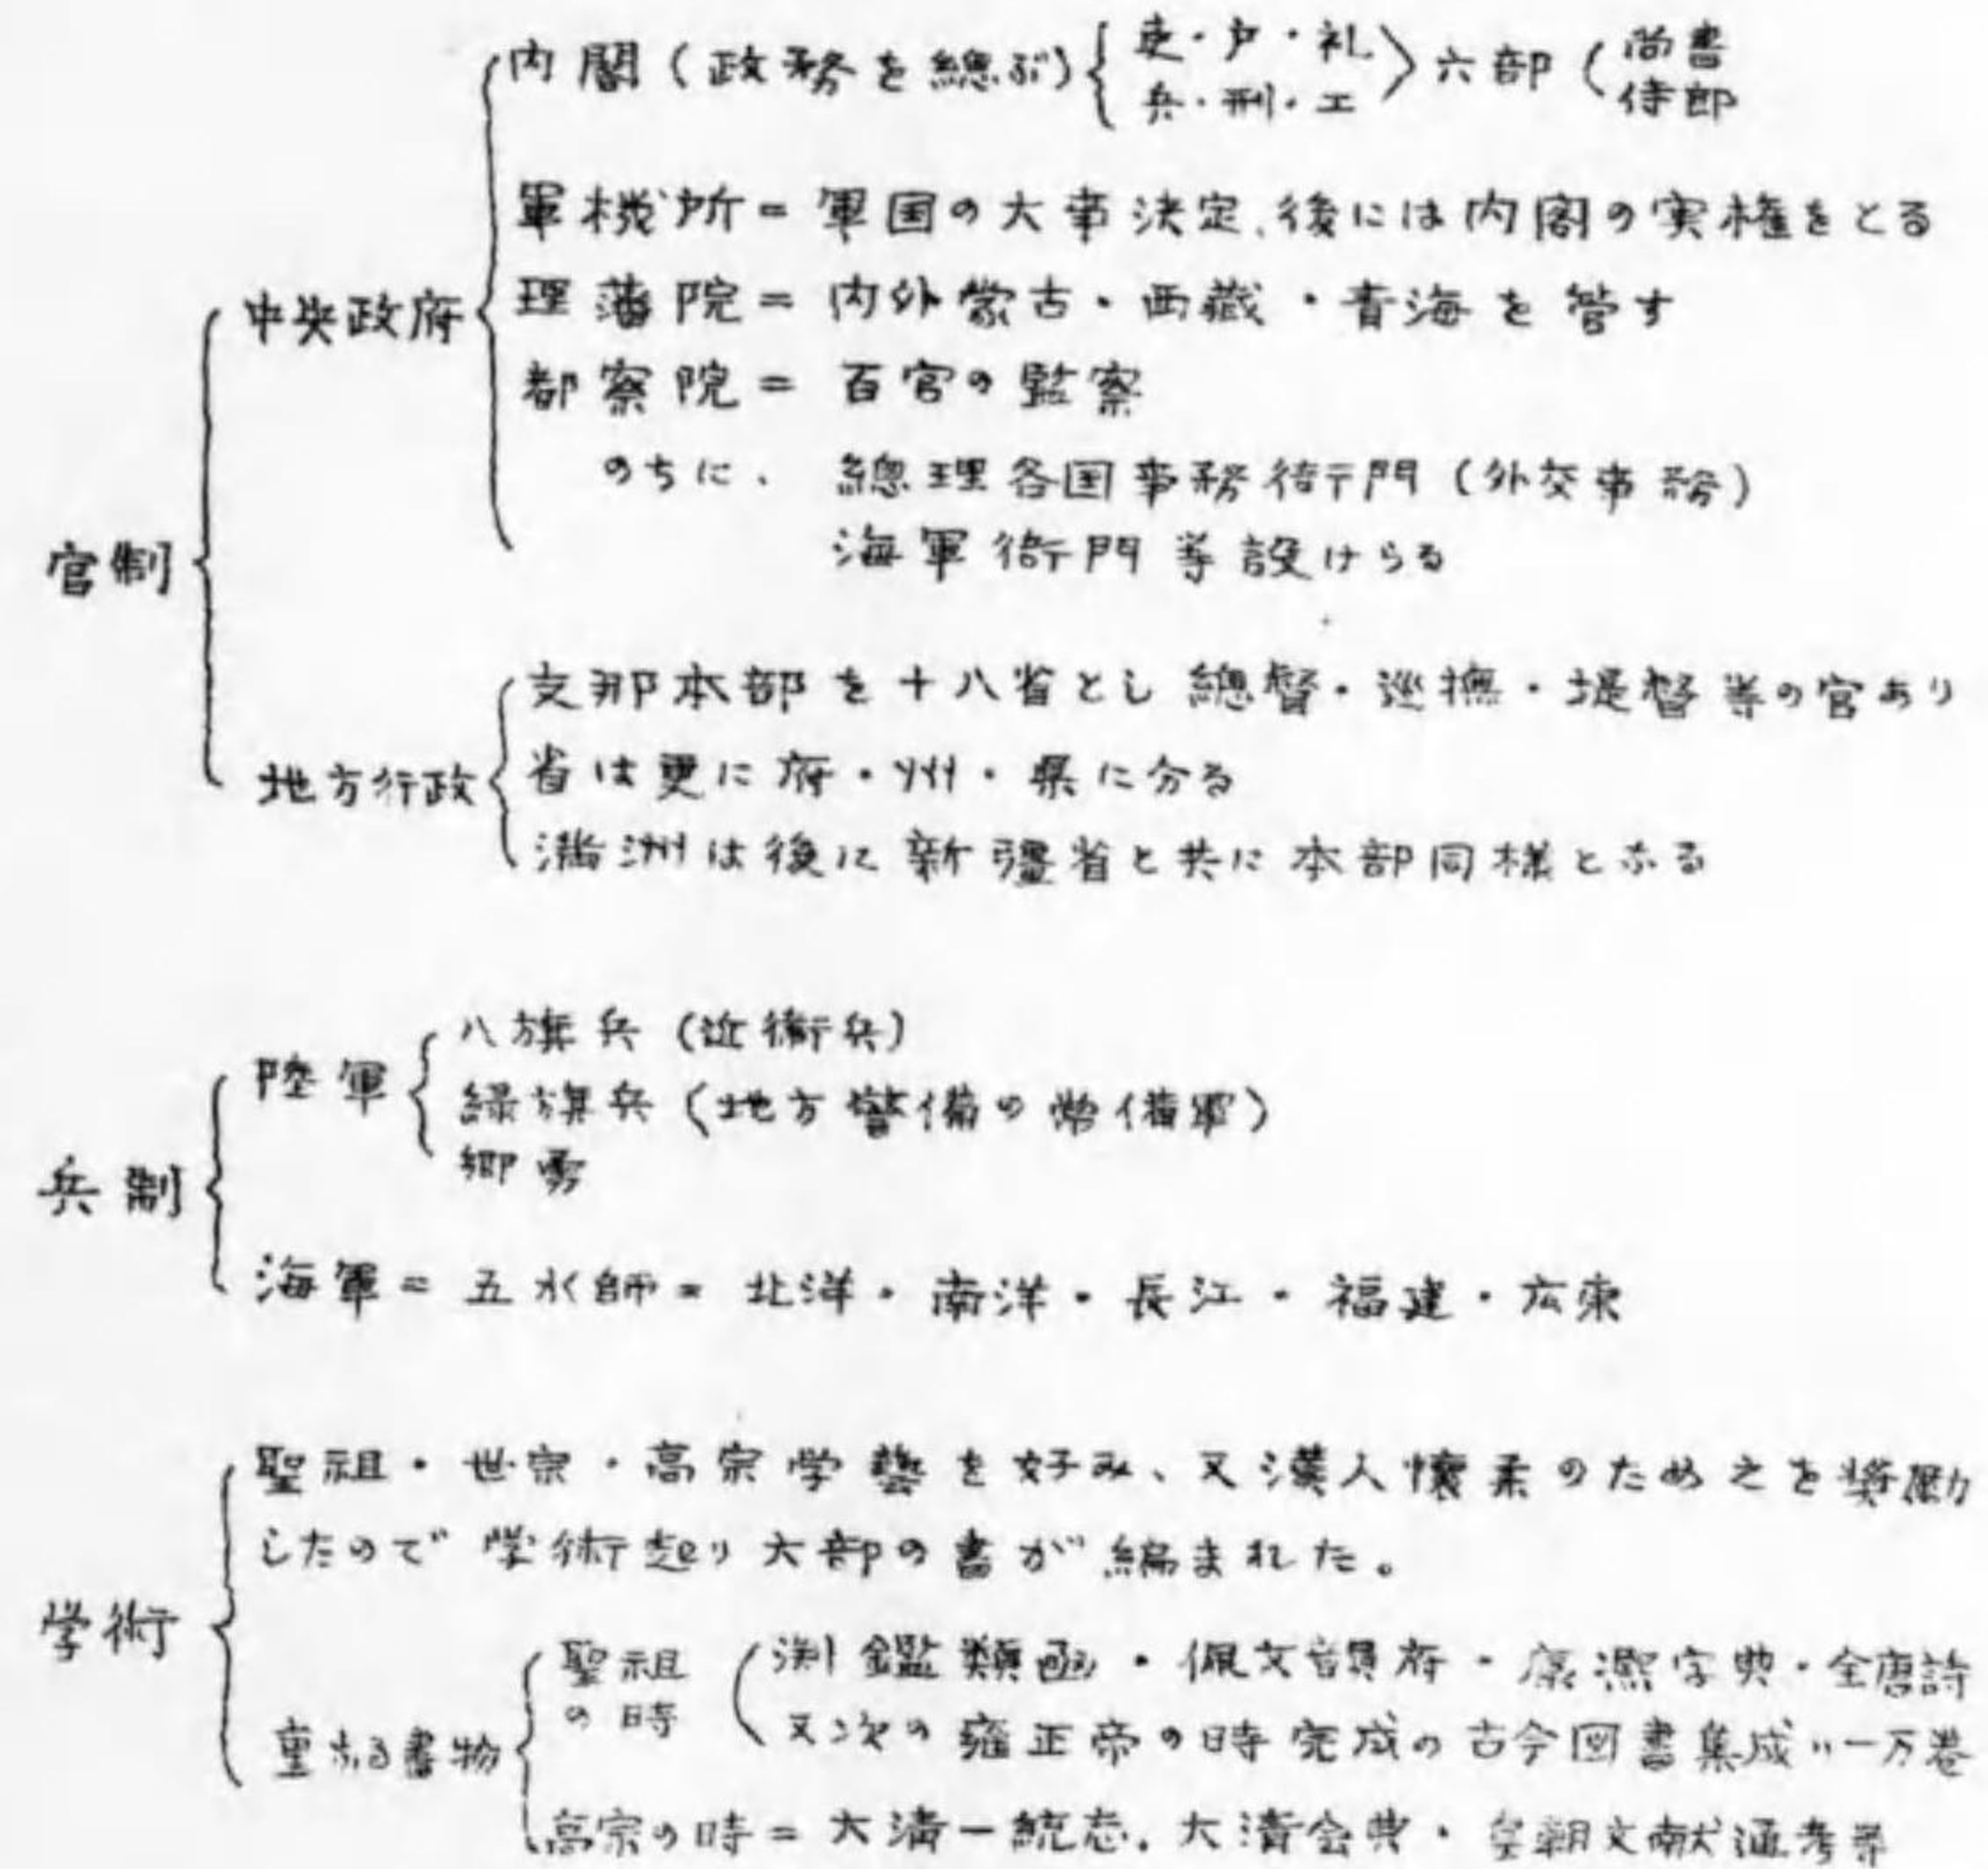 官制
中央政府
内閣（政務を總ぶ）吏・戸・礼 六部（尚書
兵・刑・工 侍郎
軍機所＝軍国の大事決定、後には内閣の実権をとる
理藩院＝内外蒙古・西藏・青海を管す
都察院＝百官の監察
のちに、總理各国事務衙門（外交事務）
海軍衙門等設けらる
地方行政
支那本部を十八省とし總督・巡撫・提督等の官あり
省は更に府・州・県に分る
満洲は後に新疆省と共に本部同様となる
兵制
陸軍
八旗兵（近衛兵）
緑旗兵（地方警備の常備軍）
郷勇
海軍＝五水師＝北洋・南洋・長江・福建・広東
学術
聖祖・世宗・高宗学藝を好み、又漢人懐柔のため之を奨励
したので学術起り大部の書が編まれた。
重なる書物
聖祖
の時
渕鑑類函・佩文韻府・康熙字典・全唐詩
又次の雍正帝の時完成の古今図書集成〃一万巻
高宗の時＝大清一統志、大清会典・皇朝文献通考等